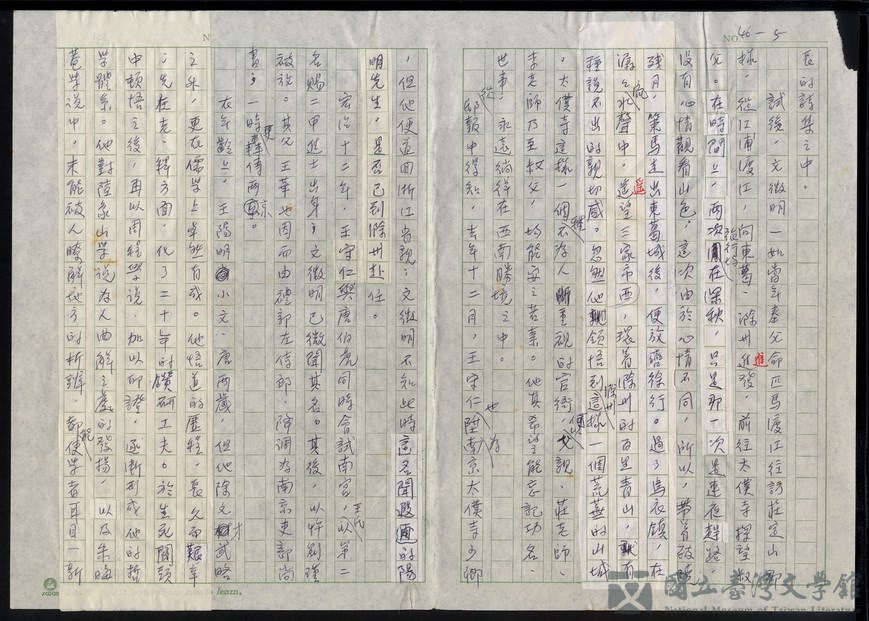 NO. 46-5
長的詩集之中。
試後，文徵明一如當年奉父命匹馬渡江往訪莊定山那
樣，從江浦渡江，向東葛、滁州進發，前往太僕寺探望叔
父。在時間上，兩次旅行均在深秋，只是那一次是連夜趕路，
沒有心情觀看山色，這次由於心情不同，所以，帶着破曉
殘月，策馬走出東葛城後，便放轡徐行。過了烏衣鎮，在
潺潺水聲中，遙望三家市西，環着滁州的百里青山，就有
種說不出的親切感。忽然他領悟到滁州這樣一個荒蕪的山城
，太僕寺這樣一個不為人所重視的官衙，使父親、莊老師、
李老師乃至叔父，均能安之若素。他真希望能忘記功名、
世事，永遠徜徉在西南勝境之中。
從邸報中得知，去年十二月，王守仁也陞為南京太僕寺少卿
，但他便道回浙江省親；文徵明不知此時這名聞遐邇的陽
明先生，是否已到滁州赴任。
弘治十二年，王守仁與唐伯虎同時會試南宮，王氏以第二
名賜二甲進士出身；文徵明已微聞其名。其後，以忤劉瑾
被放。其父王華也因而由禮部左侍郎，降調為南京吏部尚
書；一時更轟傳兩京。
在年齡上，王陽明小文、唐兩歲，但他除文才武略
之外，更在儒學上卓然有成。他悟道的歷程，長久而艱辛
；先在老、釋方面，化了二十年的鑽研工夫。於生死關頭
中頓悟之後，再以周程學說，加以印證，逐漸形成他的哲
學體系。他對陸象山學說為人曲解之處的發揚，以及朱晦
菴學說中，未能破人瞭解地方的析辨，都能使學者耳目一新
國立臺灣文學館
National Museum of Taiwan Literature